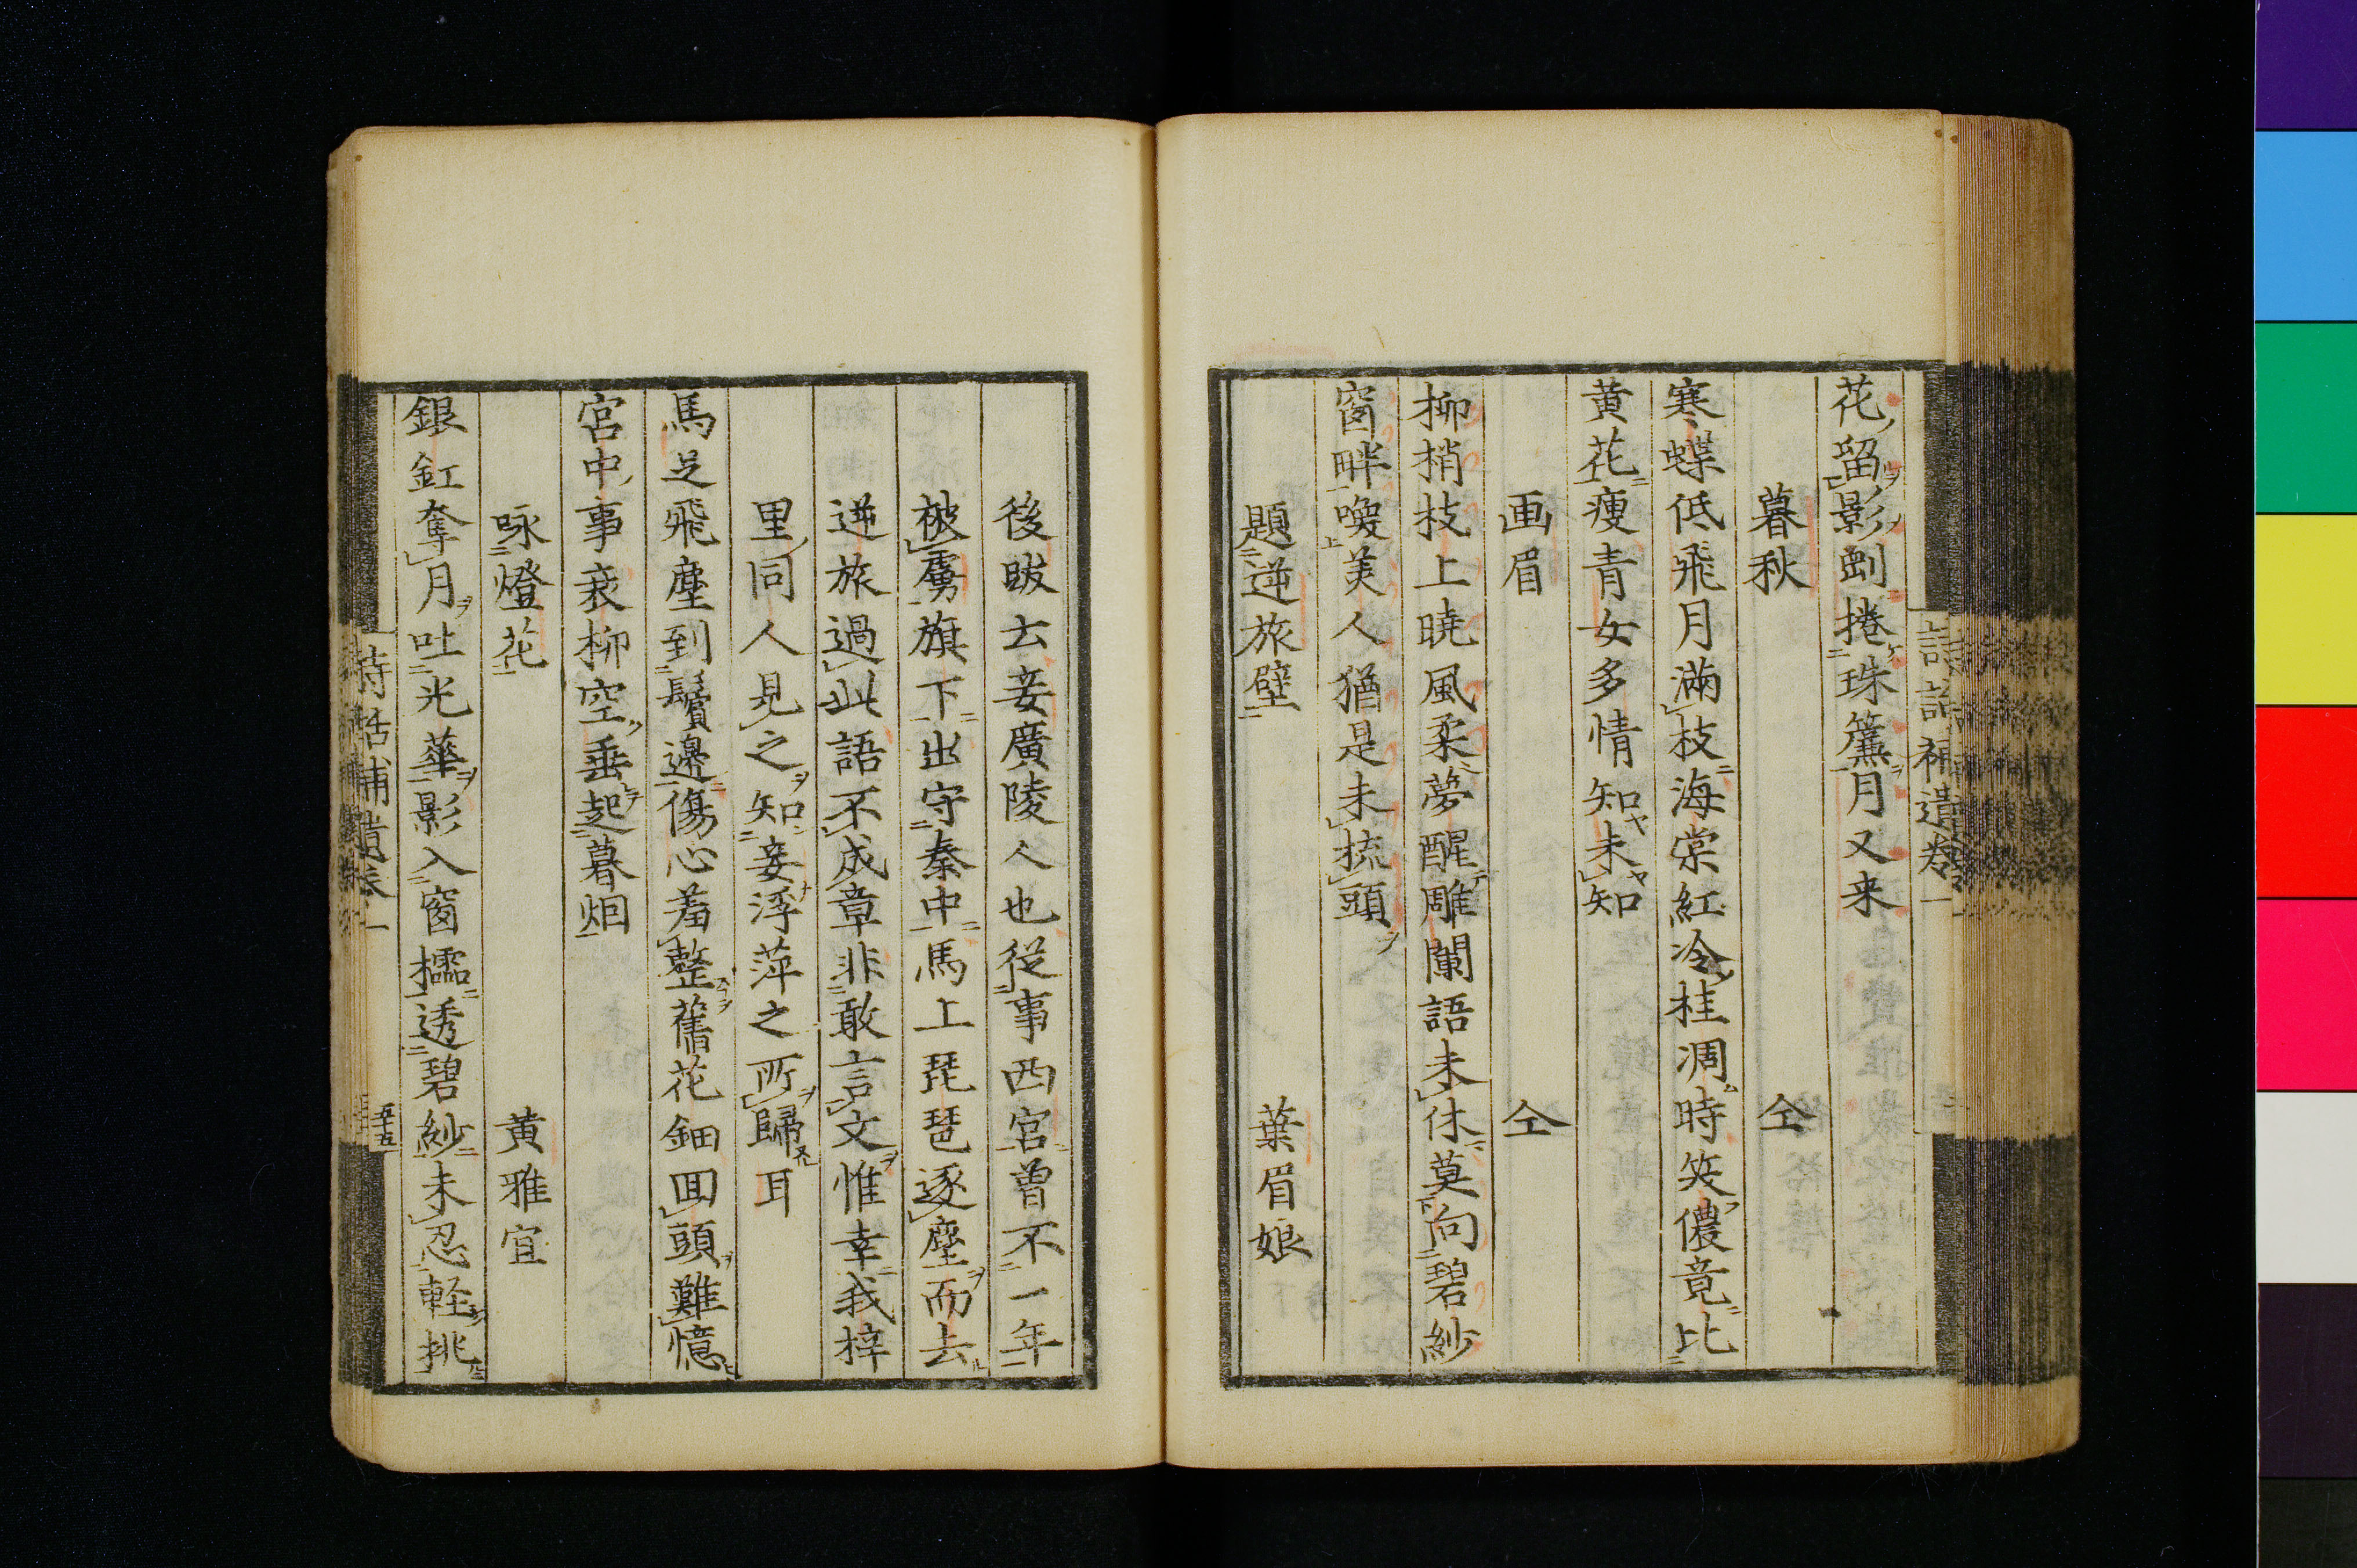 花留影剻捲珠簾月又来
暮秋 仝
寒蝶低飛月滿枝海棠紅冷桂凋時笑儂竟比
黄花痩青女多情知未知
画眉 仝
柳梢枝上曉風柔夢醒雕闌語未休莫向碧紗
窗畔喚美人猶是未梳頭
題逆旅壁 葉眉娘
後跋云妾廣陵人也従事西宮曾不一年
被虜旗下出守秦中馬上琵琶逐塵而去
逆旅過此語不成章非敢言文惟幸我梓
里同人見之知妾浮萍之所歸耳
馬足飛塵到鬢邊傷心羞整舊花鈿囬頭難憶
宮中事衰柳空垂起暮烟
咏燈花 黄雅宜
銀釭奪月吐光華影入窗櫺透碧紗未忍軽挑
詩話補遺巻一
五十五